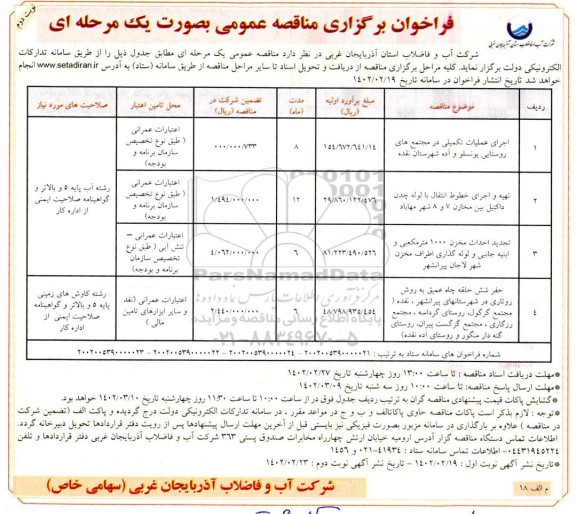 نوبت دوم
فراخوان برگزاری مناقصه عمومی بصورت یک مرحله ای
شرکت آب و فاضلاب استان آذربایجان غربی
شرکت آب و فاضلاب استان آذربایجان غربی در نظر دارد مناقصه عمومی یک مرحله ای مطابق جدول ذیل را از طریق سامانه تدارکات
الکترونیکی دولت برگزار نماید. کلیه مراحل برگزاری مناقصه از دریافت و تحویل اسناد تا سایر مراحل مناقصه از طریق سامانه (ستاد) به آدرس www.setadiran.ir انجام
خواهد شد تاریخ انتشار فراخوان در سامانه تاریخ ۱۴۰۲/۰۲/۱۹
ردیف موضوع مناقصه مبلغ برآورد اولیه (ریال) مدت (ماه) تضمین شرکت در مناقصه (ریال) محل تامین اعتبار صلاحیت های مورد نیاز
۱ اجرای عملیات تکمیلی در مجتمع های روستایی یونسلو و آده شهرستان نقده ۱۵۴/۶۷۲/۶۴۱/۱۴ ۸ ۰۰۰/۰۰۰/۷۳۳ اعتبارات عمرانی ( طبق نوع تخصیص سازمان برنامه و بودجه)
رشته آب پایه ۵ و بالاتر و گواهینامه صلاحیت ایمنی از اداره کار
۲ تهیه و اجرای خطوط انتقال با لوله چدن داکتیل بین مخازن ۷ و ۸ شهر مهاباد ۲۹/۸۶۰/۱۲۲/۴۷۶ ۱۲ ۱/۴۹۴/۰۰۰/۰۰۰ اعتبارات عمرانی ( طبق نوع تخصیص سازمان برنامه و بودجه)
۳ تجدید احداث مخزن ۱۰۰۰ مترمکعبی و ابنیه جانبی و لوله گذاری اطراف مخزن شهر لاجان پیرانشهر ۸۱/۲۲۳/۴۹۰/۵۲۶ ۶ ۴/۰۶۲/۰۰۰/۰۰۰ اعتبارات عمرانی – تنش آبی ( طبق نوع تخصیص سازمان برنامه و بودجه)
۴ حفر شش حلقه چاه عمیق به روش روتاری در شهرستانهای پیرانشهر ، نقده ( مجتمع گرگول، روستای گرداسه ، مجتمع رزگاری ، مجتمع گزگست پیران، روستای گنه دار منگور و روستای آده نقده) ۴۸۷۹۸/۹۳۵/۴۵۴ ۶ ۲/۴۴۰/۰۰۰/۰۰۰ اعتبارات عمرانی (نقد و سایر ابزارهای تامین مالی ) رشته کاوش های زمینی پایه ۵ و بالاتر و گواهینامه صلاحیت ایمنی از اداره کار
ParsNamadData
۰۲۱-۸۸۳۴۹۶۷۰-۵
شماره فراخوان های سامانه ستاد به ترتیب : ۲۰۰۲۰۰۵۳۹۰۰۰۰۰۲۱ - ۲۰۰۲۰۰۵۳۹۰۰۰۰۰۲۴ - ۲۰۰۲۰۰۵۳۹۰۰۰۰۰۲۲ - ۲۰۰۲۰۰۵۳۹۰۰۰۰۰۲۳
*مهلت دریافت اسناد مناقصه : تا ساعت ۱۳:۰۰ روز چهارشنبه تاریخ ۱۴۰۲/۰۲/۲۷
*مهلت ارسال پاسخ مناقصه: تا ساعت ۱۰:۰۰ روز سه شنبه تاریخ ۱۴۰۲/۰۳/۰۹
*گشایش پاکات قیمت پیشنهادی مناقصه گران به ترتیب ردیف جدول فوق در از ساعت ۱۰:۰۰ تا ساعت ۱۱:۳۰ روز چهارشنبه تاریخ ۱۴۰۲/۰۳/۱۰ خواهد بود.
*توجه : لازم بذکر است پاکات مناقصه حاوی پاکاتالف و ب و ج در مواعد مقرر ، در سامانه تدارکات الکترونیکی دولت درج گردیده و پاکت الف (تضمین شرکت
در مناقصه ) علاوه بر بارگذاری در سامانه مزبور بصورت فیزیکی نیز بایستی قبل از آخرین مهلت ارسال پیشنهادها پس از رویت دفتر قراردادها تحویل دبیرخانه گردد.
اطلاعات تماس دستگاه مناقصه گزار آدرس ارومیه خیابان ارتش چهارراه مخابرات صندوق پستی ۳۶۳ شرکت آب و فاضلاب آذربایجان غربی دفتر قراردادها و تلفن
۰۴۴۳۱۹۴۵۲۲۴- اطلاعات تماس سامانه ستاد: ۴۱۹۳۴-۰۲۱ و ۱۴۵۶
*تاریخ نشر آگهی نوبت اول : ۱۴۰۲/۰۲/۱۹ - تاریخ نشر آگهی نوبت دوم : ۱۴۰۲/۰۲/۲۳
م الف ۱۸
شرکت آب و فاضلاب آذربایجان غربی (سهامی خاص)